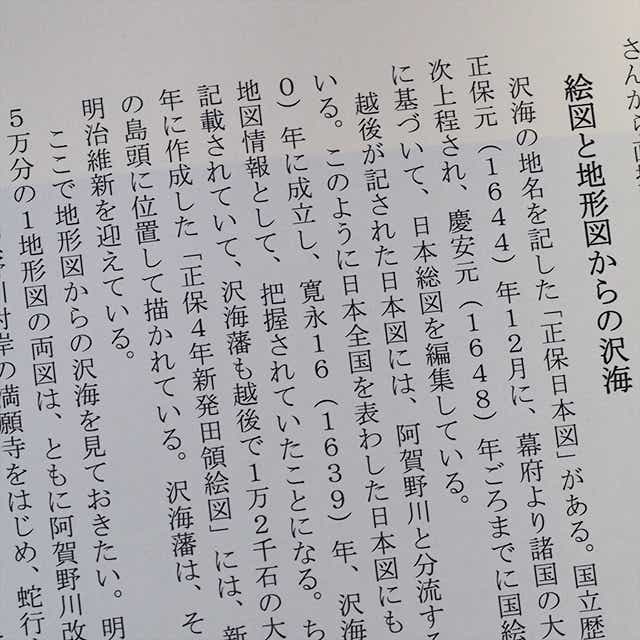 さんから両親
絵図と地形図からの沢海
沢海の地名を記した「正保日本図」がある。国立歴
正保元（１６４４）年１２月に、幕府より諸国の大
次上程され、慶安元（１６４８）年ごろまでに国絵
に基づいて、日本総図を編集している。
越後が記された日本図には、阿賀野川と分流する
いる。このように日本全国を表わした日本図にも
０）年に成立し、寛永１６（１６３９）年、沢海
地図情報として、把握されていたことになる。ち
記載されていて、沢海藩も越後で１万２千石の大
年に作成した「正保４年新発田領絵図」には、新
の島頭に位置して描かれている。沢海藩は、そ
明治維新を迎えている。
ここで地形図からの沢海を見ておきたい。明
５万分の１地形図の両図は、ともに阿賀野川改
川対岸の満願寺をはじめ、蛇行